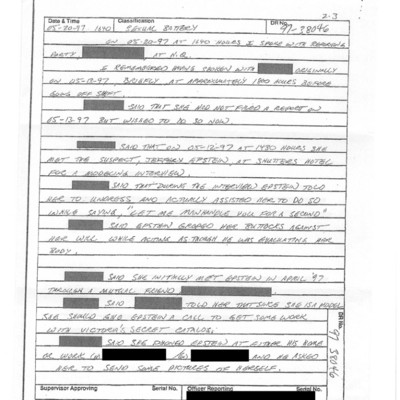 2-3
Date & Time Classification DR No.
05-20-97 1640 SEXUAL BATTERY 97-38046
ON 05-20-97 AT 1640 HOURS I SPOKE WITH REPORTING
PARTY, AT H.Q.
I REMEMBERED HAVING SPOKEN WITH ORIGINALLY
ON 05-12-97 BRIEFLY AT APPROXIMATELY 1800 HOURS BEFORE
GOING OFF SHIFT.
SAID THAT SHE DID NOT A REPORT ON
05-12-97 BUT WISHED TO DO SO NOW.
SAID THAT ON 05-12-97 AT HOURS SHE
MET THE SUSPECT, JEFFERY EPSTEIN, AT SHUTTERS HOTEL
FOR A MODELING INTERVIEW.
SAID THAT DURING THE INTERVIEW EPSTEIN TOLD
HER TO UNDRESS AND ACTUALLY ASSISTED HER TO DO SO
WHILE SAYING, "LET ME MANHANDLE YOU FOR A SECOND"
SAID EPSTEIN GROPED HER BUTTOCKS AGAINST
HER WILL WHILE ACTING AS THOUGH HE WAS EVALUATING HER
BODY.
SAID SHE INITIALLY MET EPSTEIN IN APRIL '97
THROUGH A MUTUAL FRIEND
SAID TOLD HER THAT SINCE SHE IS A MODEL
SHE SHOULD GIVE EPSTEIN A CALL TO GET SOME WORK
WITH VICTORIA'S SECRET CATALOG.
SAID SHE PHONED EPSTEIN AT EITHER HIS HOME
OR WORK AND HE ASKED
HER TO SEND SOME PICTURES OF HERSELF.
DR No. 97 38046
Supervisor Approving Serial No. Officer Reporting Serial No.